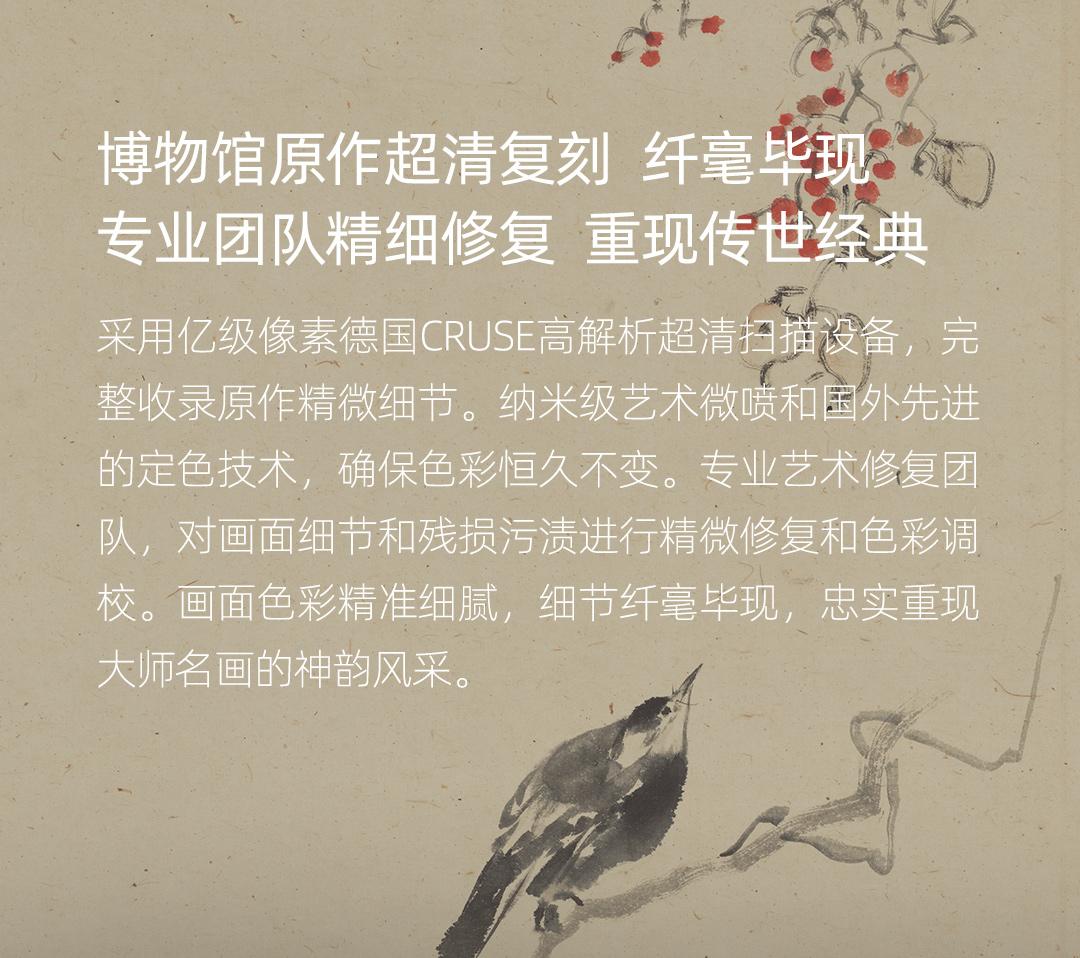 博物馆原作超清复刻 纤毫毕现
专业团队精细修复 重现传世经典
采用亿级像素德国CRUSE高解析超清扫描设备，完
整收录原作精微细节。纳米级艺术微喷和国外先进
的定色技术，确保色彩恒久不变。专业艺术修复团
队，对画面细节和残损污渍进行精微修复和色彩调
校。画面色彩精准细腻，细节纤毫毕现，忠实重现
大师名画的神韵风采。